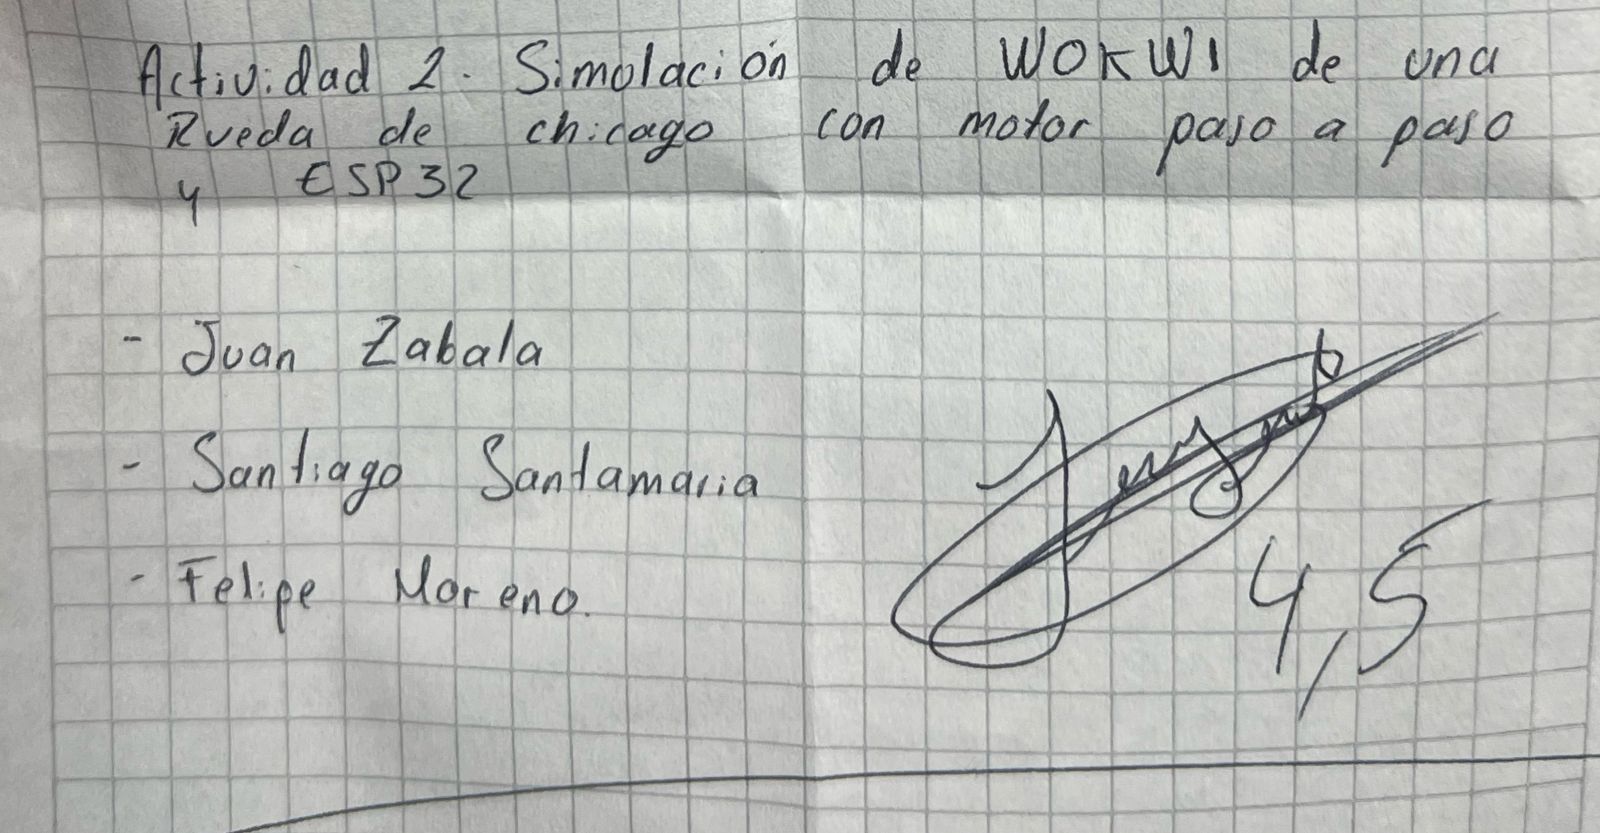 Actividad 2. Simolación de WOKWI de una
Rueda de chicago con motor paso a paso
y ESP32
- Juan Zabala
- Santiago Santamaria
- Felipe Moreno.
4,5